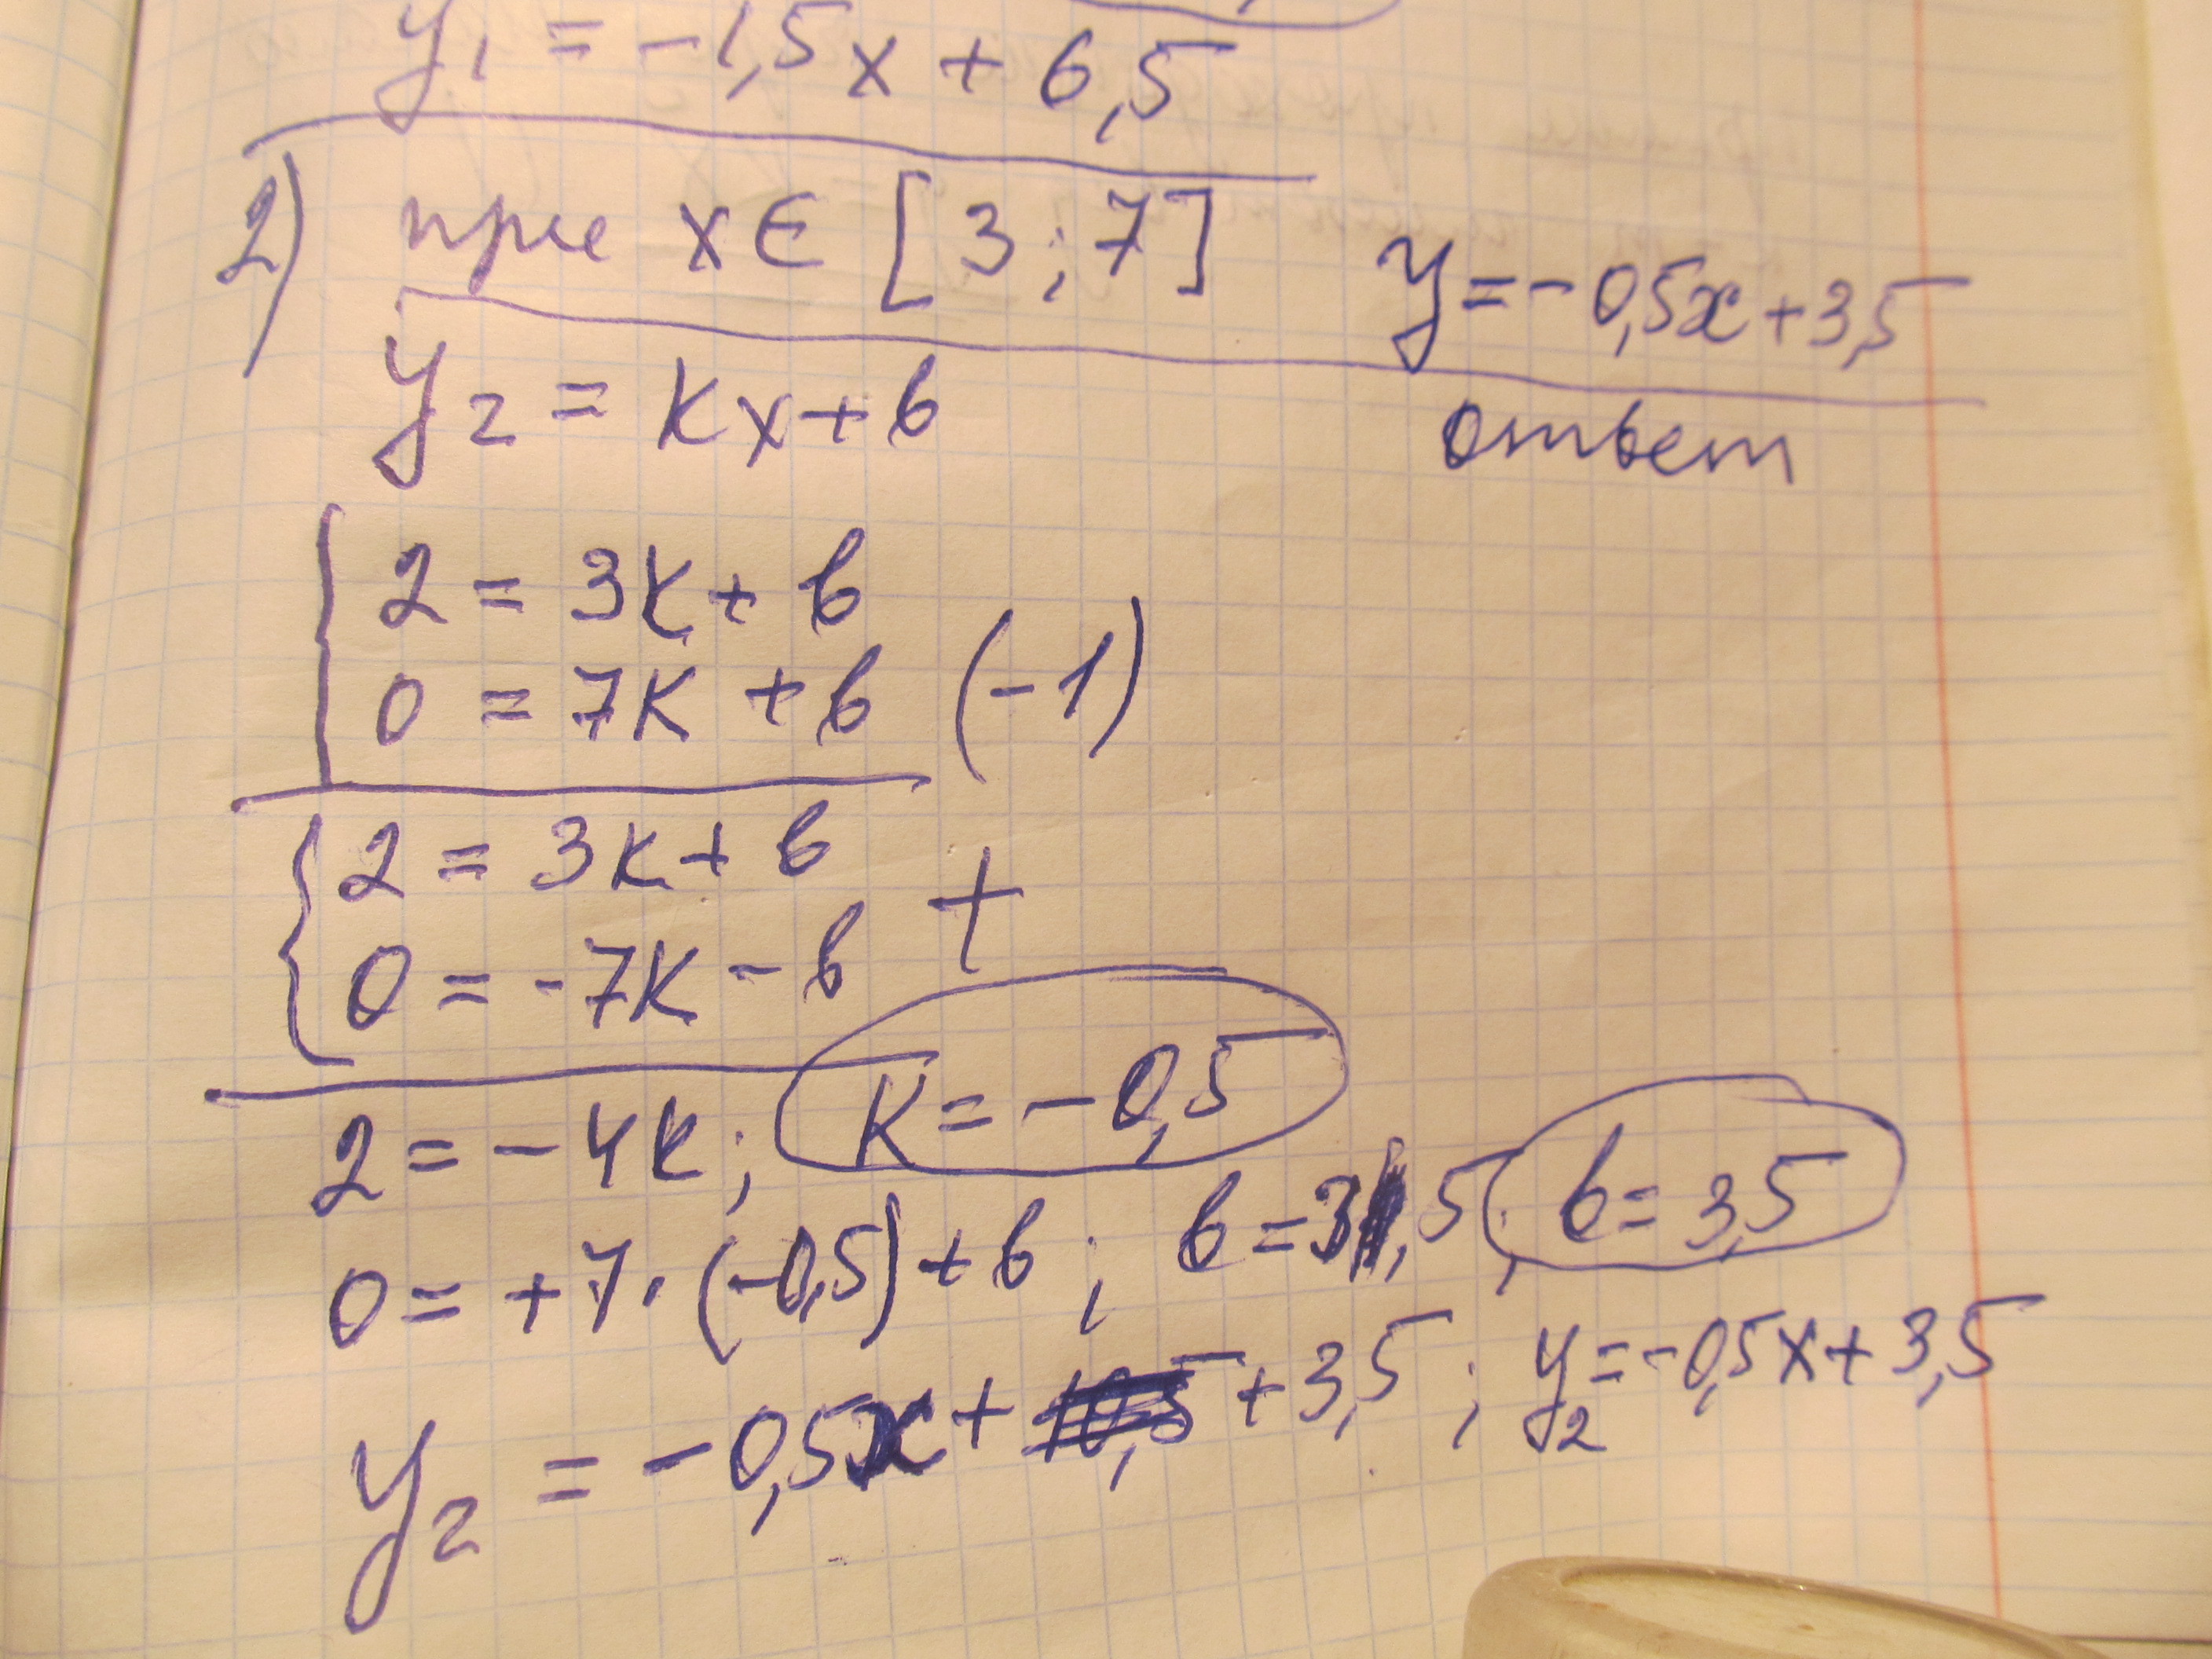 y₁ = -1,5x + 6,5
2) при x ∈ [3; 7]
y = -0,5x + 3,5
ответ
y₂ = kx + b
2 = 3k + b
0 = 7k + b (-1)
2 = 3k + b
+
0 = -7k - b
2 = -4k; k = -0,5
0 = +7·(-0,5) + b; b = 3,5; b = 3,5
y₂ = -0,5x + + 3,5; y₂ = -0,5x + 3,5